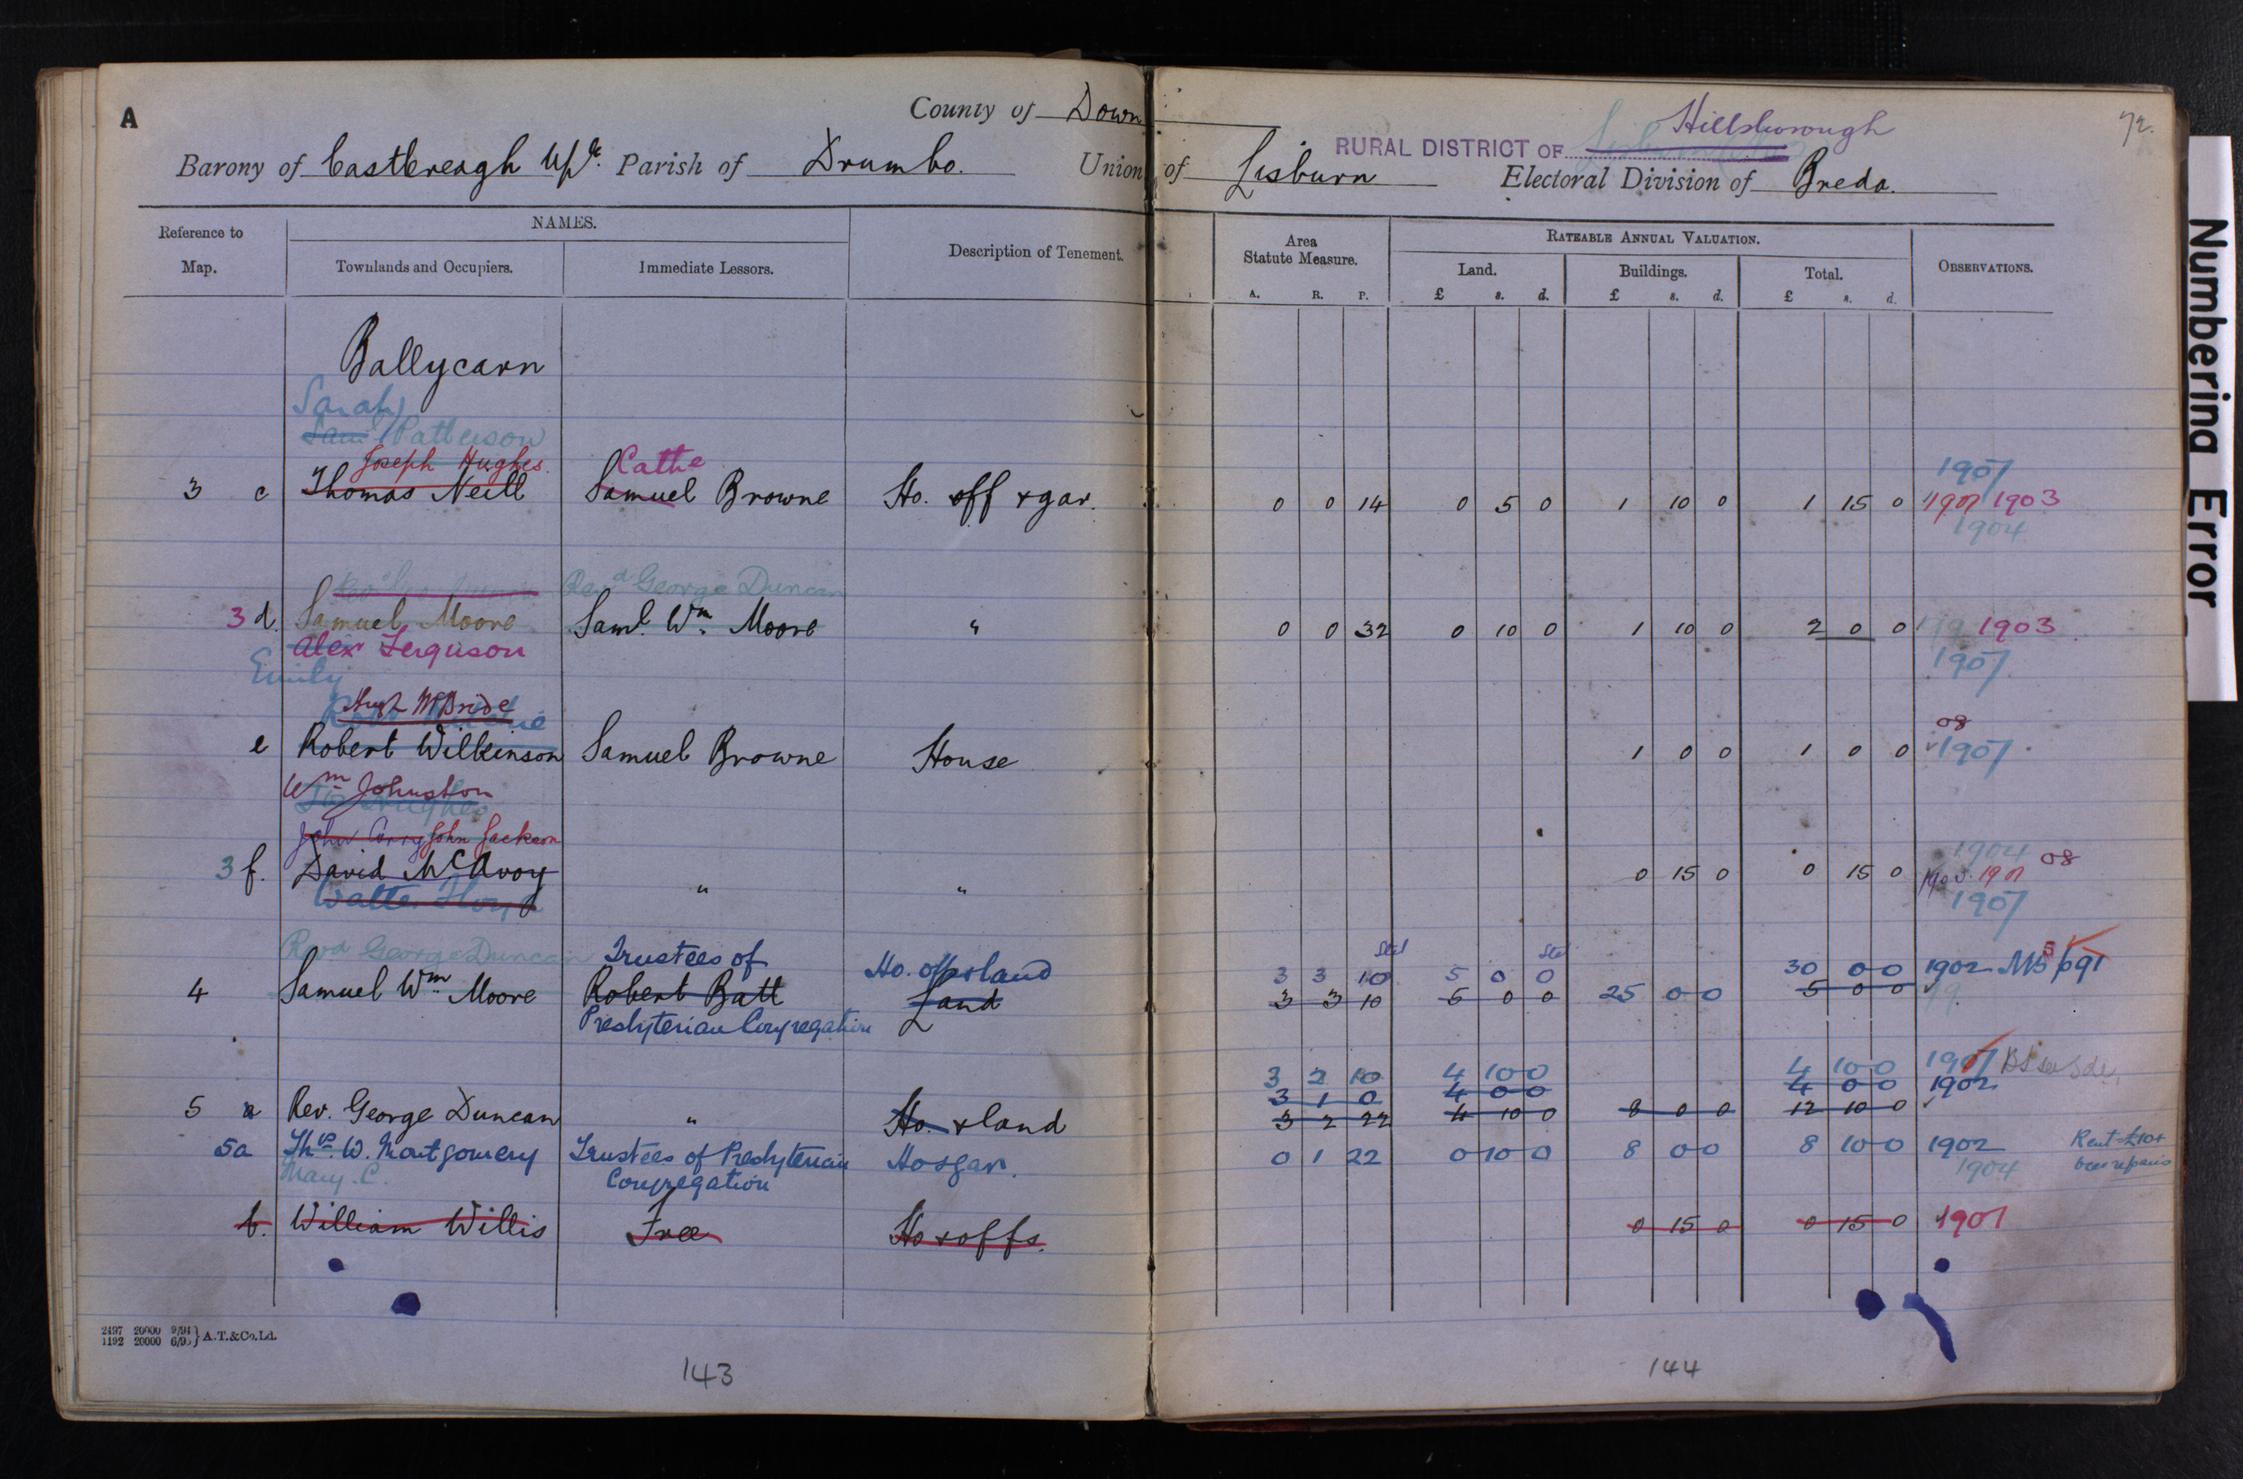 A
County of Down
72.
Barony of Castlereagh Upr. Parish of Drumbo. Union of Lisburn
RURAL DISTRICT OF Hillsborough
Electoral Division of Breda.
Reference to Map.
NAMES.
Townlands and Occupiers.
Immediate Lessors.
Description of Tenement.
Area Statute Measure.
A. R. P.
RATEABLE ANNUAL VALUATION.
Land. Buildings. Total.
£ s. d. £ s. d. £ s. d.
OBSERVATIONS.
Ballycarn
Sarah
Saml Patterson
Joseph Hughes.
Cathe
1907
3 c Thomas Neill Samuel Browne Ho. off & gar. 0 0 14 0 5 0 1 10 0 1 15 0 1901 1903
1904
Revd George Duncan
3 d. Samuel Moore Saml. Wm. Moore " 0 0 32 0 10 0 1 10 0 2 0 0 1903
Alex Ferguson
1907
Emily
Hugh McBride
08
e Robert Wilkinson Samuel Browne House 1 0 0 1 0 0 1907
Wm Johnston
Jos Hughes
John Corry John Jackson
1904 08
3 f. David McAvoy " " 0 15 0 0 15 0 1901
Walter
1907
Revd George Duncan Trustees of Ho. offs & land 3 3 10 5 0 0 30 0 0 1902
4 Samuel Wm Moore Robert Batt Land 3 3 10 5 0 0 25 0 0 5 0 0
Presbyterian Congregation
3 2 10 4 10 0 4 10 0 1907
3 1 0 4 0 0 4 0 0 1902
5 a Rev. George Duncan " Ho. & land 3 2 22 4 10 0 8 0 0 12 10 0
5a Thos W. Montgomery Trustees of Presbyterian Congregation Ho & gar. 0 1 22 0 10 0 8 0 0 8 10 0 1902
Mary. C.
1904
Rent £10+
b. William Willis Free Ho & offs. 0 15 0 0 15 0 1901
2497 20000 9/94
1192 20000 6/95 } A.T.&Co.Ld.
143
144
Numbering Error